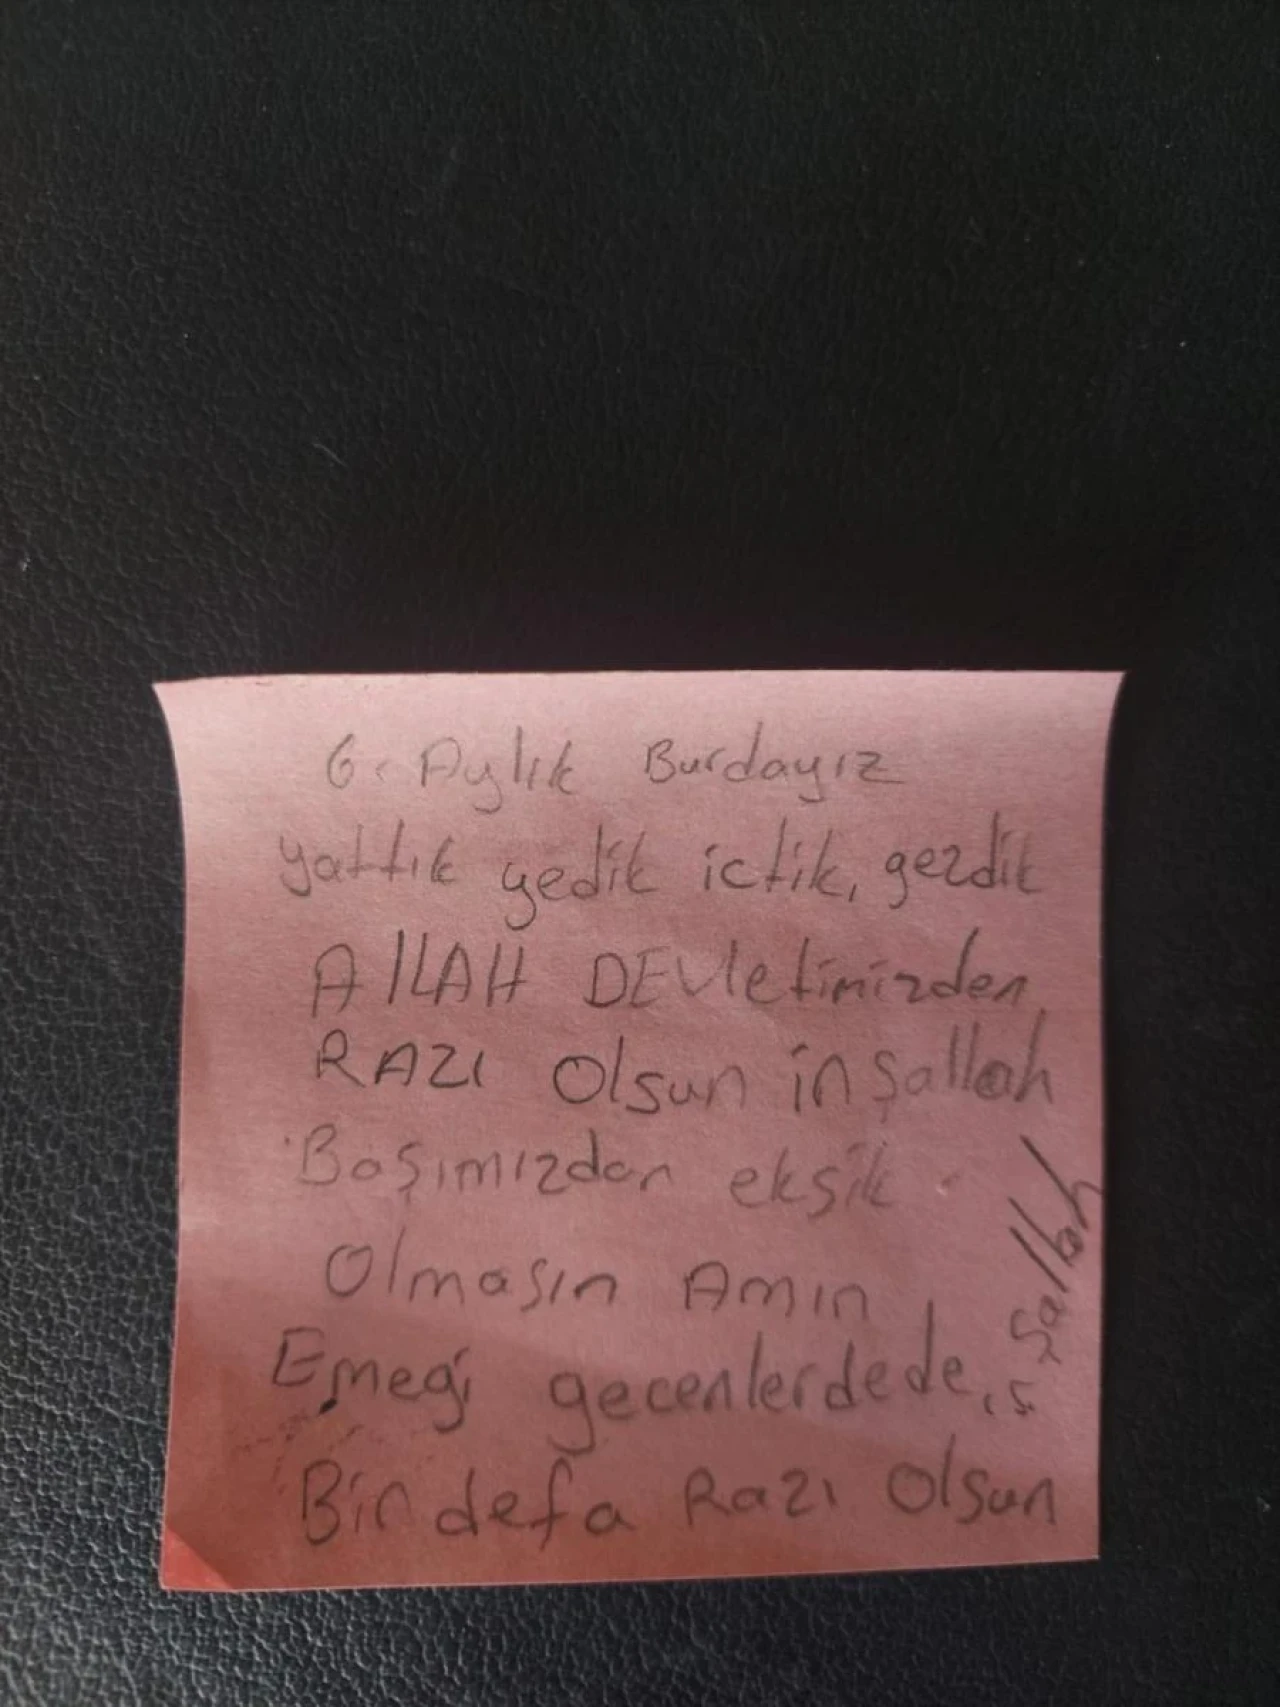 6. Aylık Burdayız
yattık yedik ictik, gezdik
AllAH DEvletimizden
RAZI Olsun inşallah
Başımızdan ekşik
Olmaşın Amın
Emegi gecenlerdede, iş
şallah
Bin defa Razı Olsun